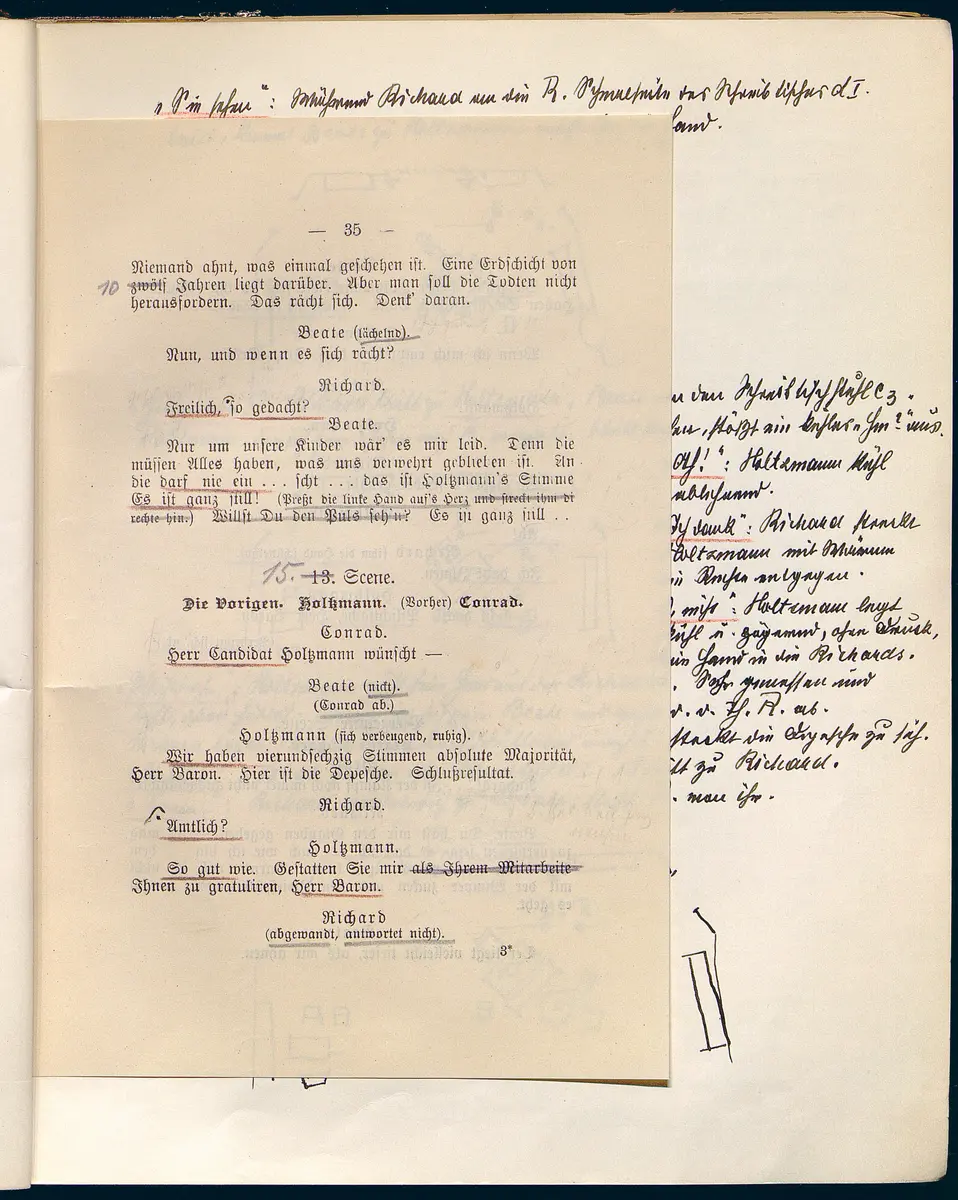 „Sie sehen": Während Richard an die R. Schmalseite des Schreibtisches d I.
hand.
— 35 —
Niemand ahnt, was einmal geschehen ist. Eine Erdschicht von
10 zwölf Jahren liegt darüber. Aber man soll die Todten nicht
herausfordern. Das rächt sich. Denk' daran.
Beate (lächelnd).
Nun, und wenn es sich rächt?
Richard.
Freilich, so gedacht?
Beate.
Nur um unsere Kinder wär' es mir leid. Denn die
müssen Alles haben, was uns verwehrt geblieben ist. An
die darf nie ein ... scht ... das ist Holtzmann's Stimme
Es ist ganz still! (Preßt die linke Hand auf's Herz und streckt ihm di
rechte hin.) Willst Du den Puls seh'n? Es ist ganz still ..
15. 13. Scene.
Die Vorigen. Holtzmann. (Vorher) Conrad.
Conrad.
Herr Candidat Holtzmann wünscht —
Beate (nickt).
(Conrad ab.)
Holtzmann (sich verbeugend, ruhig).
Wir haben vierundsechzig Stimmen absolute Majorität,
Herr Baron. Hier ist die Depesche. Schlußresultat.
Richard.
Amtlich?
Holtzmann.
So gut wie. Gestatten Sie mir als Ihrem Mitarbeite
Ihnen zu gratuliren, Herr Baron.
Richard
(abgewandt, antwortet nicht).
3*
n den Schreibtischstuhl C3.
en, stößt ein kehles „Hm?" aus.
ath!": Holtzmann kühl
ablehnend.
Ich dank": Richard streckt
Holtzmann mit Wärme
die Rechte entgegen.
nicht": Holtzmann legt
kühl u. zögernd, ohne Druck,
ein Hand in die Richards.
Sehr gemessen und
d. d. Th. R. ab.
steckt die Depesche zu sich.
itt zu Richard.
von ihr.